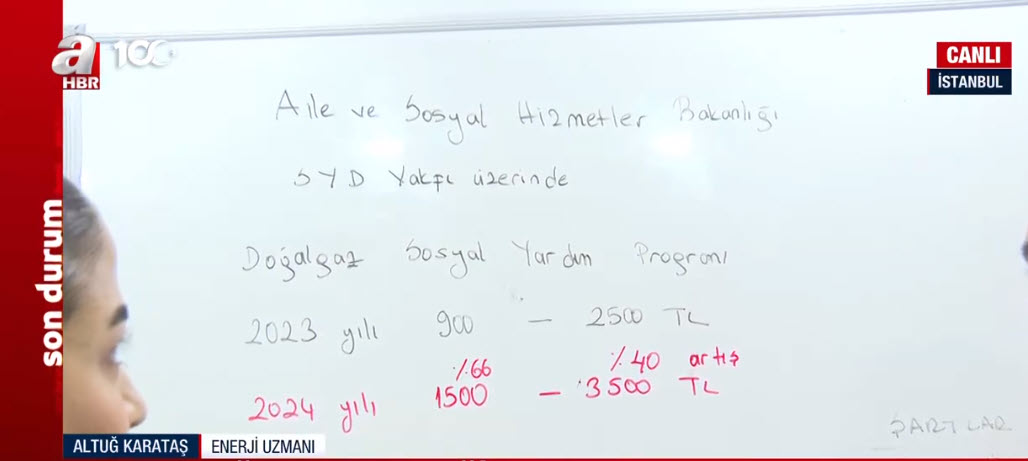 a
HBR
100
CANLI
İSTANBUL
Aile ve Sosyal Hizmetler Bakanlığı
SYD Vakfı üzerinde
Doğalgaz Sosyal Yardım Programı
2023 yılı 900 – 2500 TL
%66 %40 artış
2024 yılı 1500 – 3500 TL
ŞARTLAR
son durum
ALTUĞ KARATAŞ ENERJİ UZMANI